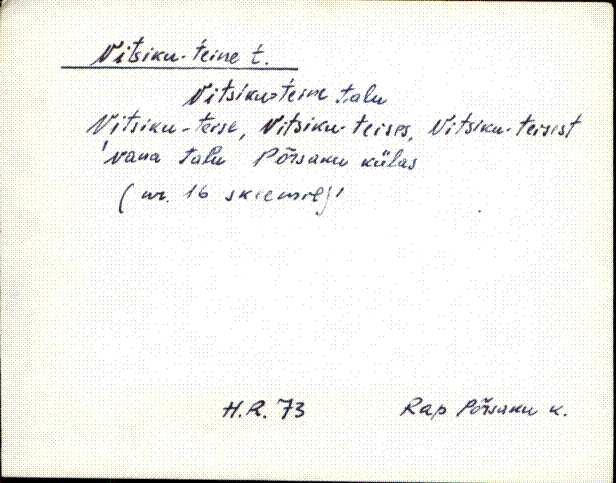 Vitsiku-teine t.
Vitsiku-teine talu
Vitsiku-teise, Vitsiku-teises, Vitsiku-teisest
'vana talu Põrsaku külas
(nr. 16 skeemil)'
H.R. 73 Rap Põrsaku k.